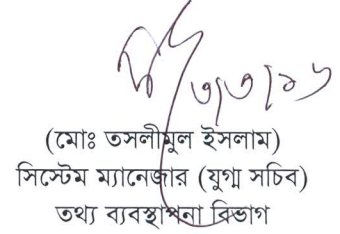 ৩/৩/১৬
(মোঃ তসলীমুল ইসলাম)
সিস্টেম ম্যানেজার (যুগ্ম সচিব)
তথ্য ব্যবস্থাপনা বিভাগ